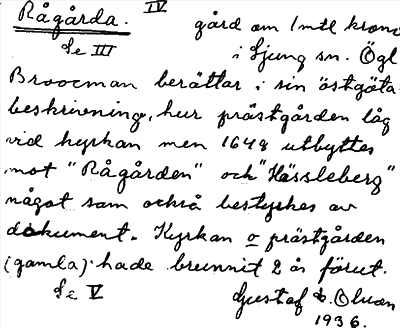 Rågårda. IV gård om 1 mtl krono
Se III i Ljung sn. Ögl
Broocman berättar i sin östgöta-
beskrivning, hur prästgården låg
vid kyrkan men 1648 utbyttes
mot "Rågården" och "Hässleberg"
något som också bestyrkes av
dokument. Kyrkan o prästgården
(gamla) hade brunnit 2 år förut.
Se V Gustaf
1936.